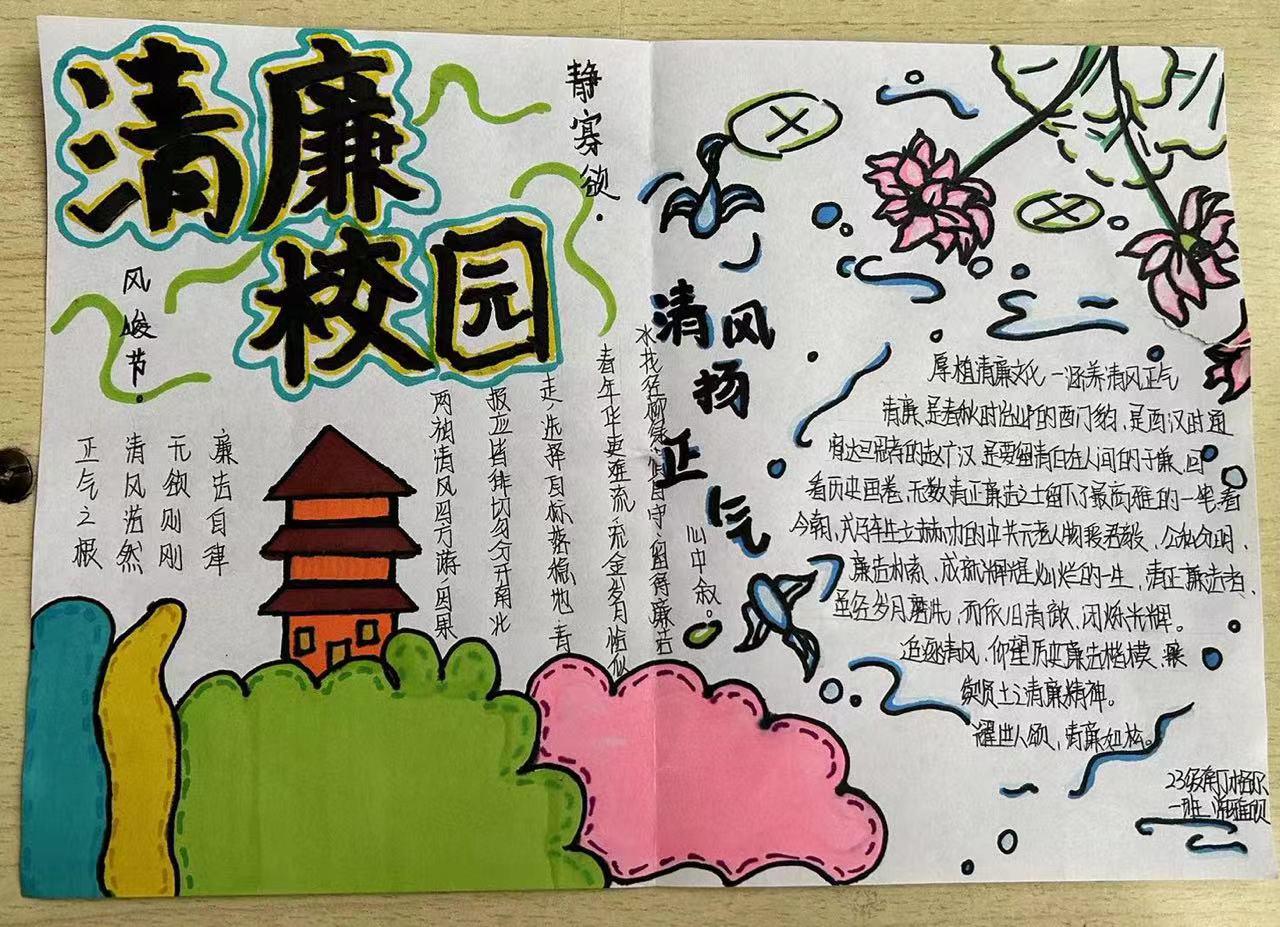 清廉
校园
静寡欲.
风峻节.
廉洁自律
无欲则刚
清风浩然
正气之根
清风
扬
正
气
心中叙。
水找径柳绿 自守,留得廉洁
春年华更难流,流金岁月恰似
走,选择目标落稳地,青
报应皆非切勿分开南北
两袖清风四方游,因果
厚植清廉文化一涵养清风正气
清廉,是春秋时治邺的西门豹,是西汉时通
宵达旦 的赵广汉,是要留清白在人间的于谦,回
看历史画卷,无数清正廉洁之士留下了最高雅的一笔,看
今朝, 的中共元老人物 ,公私分明,
廉洁朴素、成就辉煌灿烂的一生,清正廉洁者,
虽经岁月磨洗,而依旧清澈、闪烁光辉。
追逐清风,仰望历史廉洁楷模、
贤士之清廉精神。
人颂,清廉如松。
23级
一班